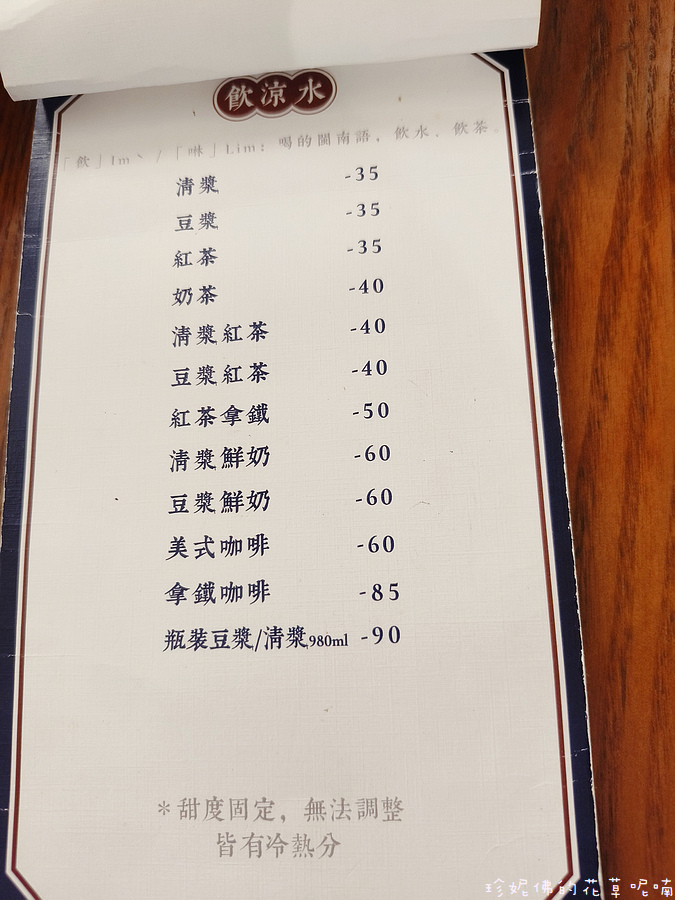 飲涼水
「飲」Im、/「啉」Lim：喝的閩南語，飲水，飲茶。
清漿 -35
豆漿 -35
紅茶 -35
奶茶 -40
清漿紅茶 -40
豆漿紅茶 -40
紅茶拿鐵 -50
清漿鮮奶 -60
豆漿鮮奶 -60
美式咖啡 -60
拿鐵咖啡 -85
瓶裝豆漿/清漿980ml -90
＊甜度固定，無法調整
皆有冷熱分
珍妮佛的花草呢喃